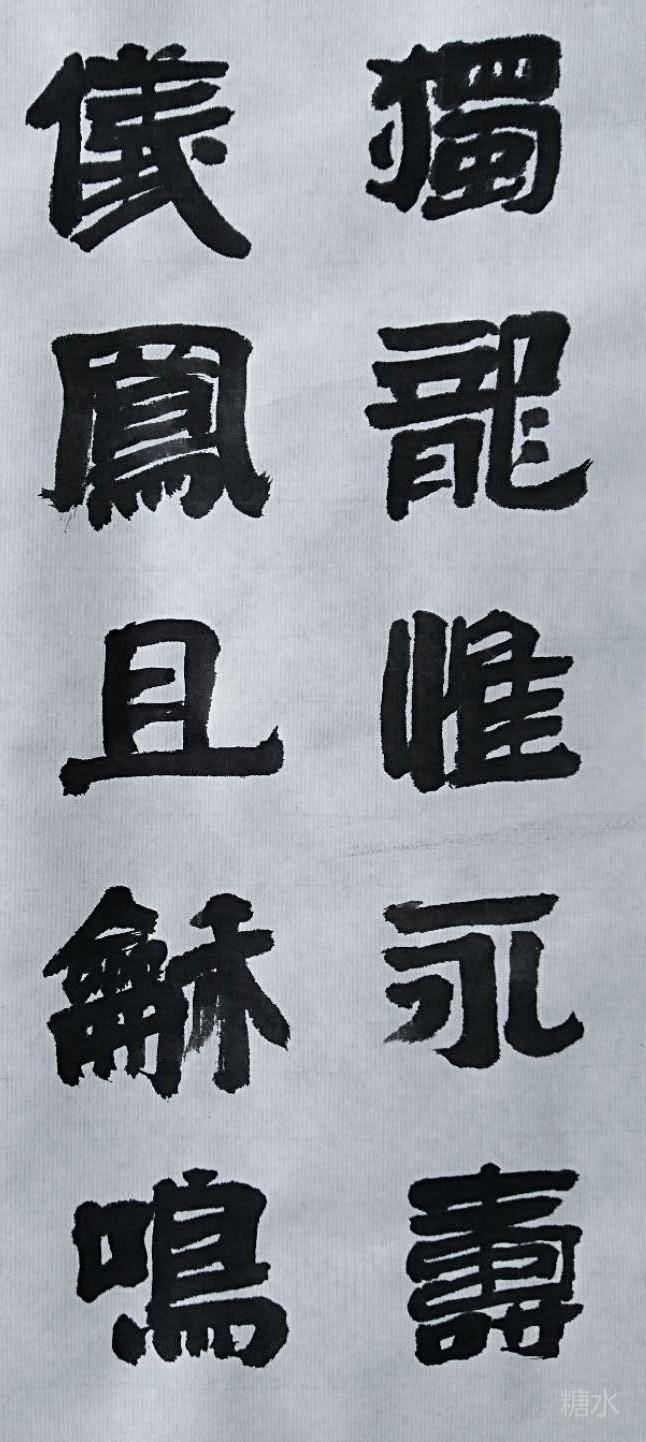 獨龍惟永壽
儀鳳且龢鳴
糖水